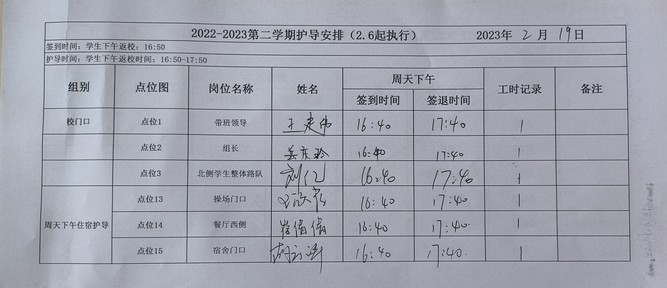 2022-2023第二学期护导安排（2.6起执行） 2023年 2 月 19日
签到时间：学生下午返校：16:50
护导时间：学生下午返校时间：16:50-17:50
组别 点位图 岗位名称 姓名 周天下午 工时记录 备注
签到时间 签退时间
校门口 点位1 带班领导 16:40 17:40 1
点位2 组长 16:40 17:40 1
点位3 北侧学生整体路队 刘仁 16:40 17:40 1
周天下午住宿护导 点位13 操场门口 16:40 17:40 1
点位14 餐厅西侧 16:40 17:40 1
点位15 宿舍门口 16:40 17:40 1